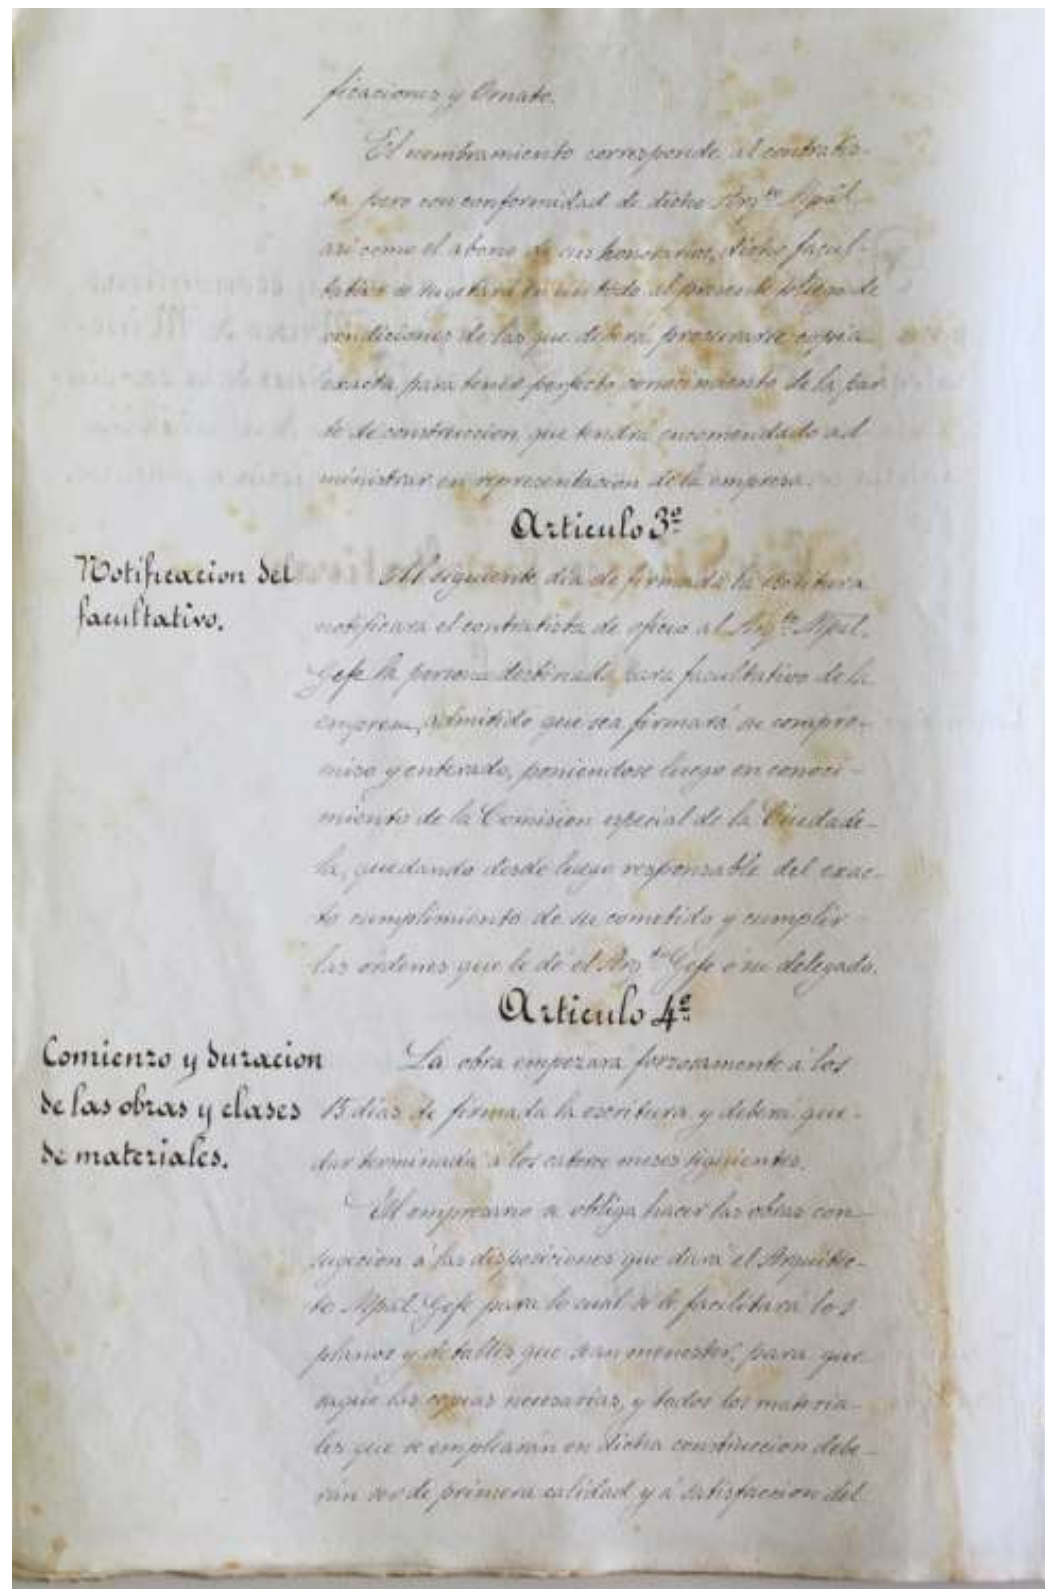 ficaciones y Ornato.
El nombramiento corresponde al contratis-
ta pero con conformidad de dicho Arqto Mpal.
asi como el abono de sus honorarios, dicho facul-
tativo se sugetará en un todo al presente pliego de
condiciones de las que deberá procurarse copia
exacta para tener perfecto conocimiento de la par
te de construccion que tendrá encomendado ad
ministrar en representacion de la empresa.
Articulo 3º
Notificacion del
facultativo.
Al siguiente dia de firmada la escritura
notificará el contratista de oficio al Arqto Mpal.
Gefe la persona destinada para facultativo de la
empresa, admitido que sea firmará su compro-
miso y enterado, poniendose luego en conoci-
miento de la Comision especial de la Ciudade-
la, quedando desde luego responsable del exac-
to cumplimiento de su cometido y cumplir
las órdenes que le dé el Arqto Gefe ó su delegado.
Articulo 4º
Comienzo y duracion
de las obras y clases
de materiales.
La obra empezará forzosamente á los
15 dias de firmada la escritura y deberá que-
dar terminada á los catorce meses siguientes.
El empresario se obliga hacer las obras con
sugecion á las disposiciones que dará el Arquitec-
to Mpal. Gefe para lo cual se le facilitará los
planos y detalles que sean menester, para que
saque las copias necesarias, y todos los materia-
les que se emplearán en dicha construccion debe-
rán ser de primera calidad y á satisfaccion del